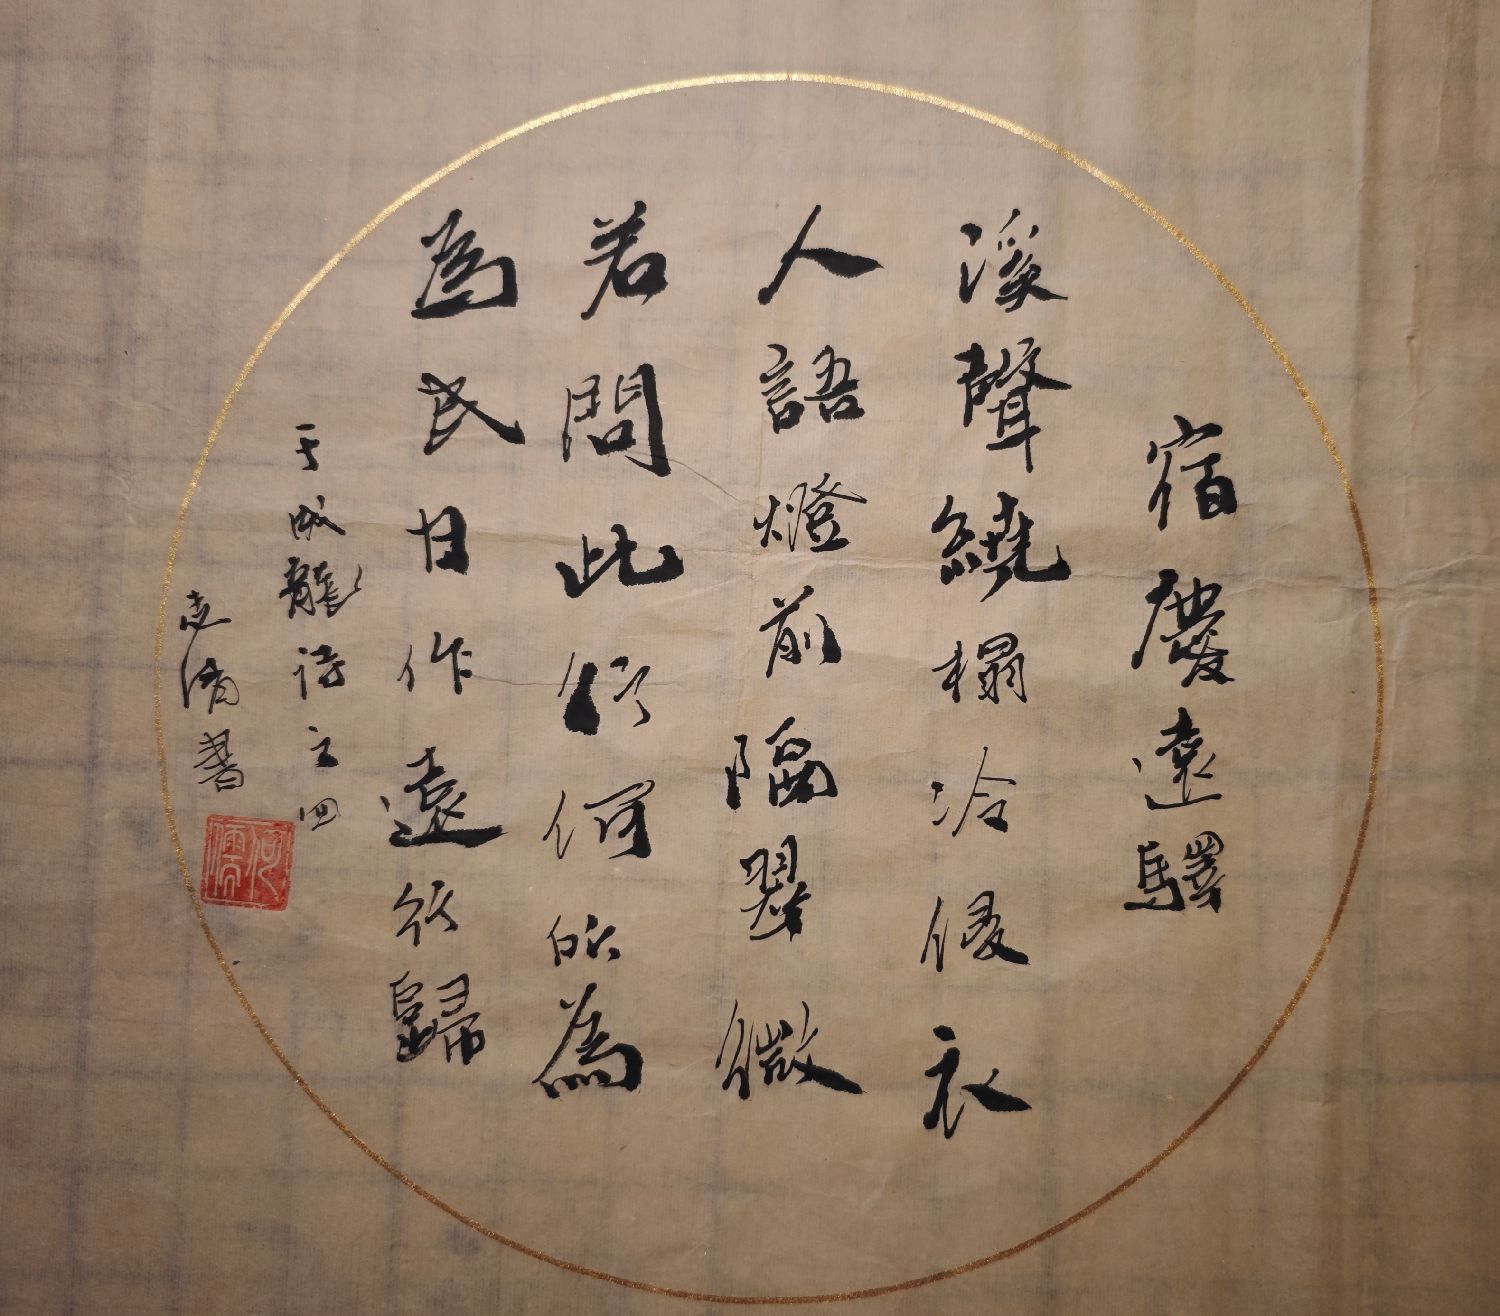 宿農遠驛
溪聲繞榻冷侵衣
人語燈前隔翠微
若問此行何所為
為民日作遠行歸
于成龍詩之四
志清書
何儒